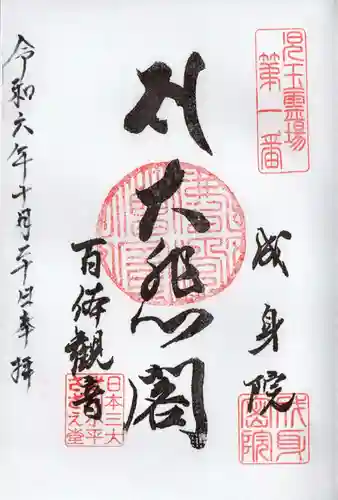 児玉霊場
第一番
成身院
成身
密院
サ
大悲閣
百体観音
日本三大
さざえ堂
令和六年十月二十日奉拝